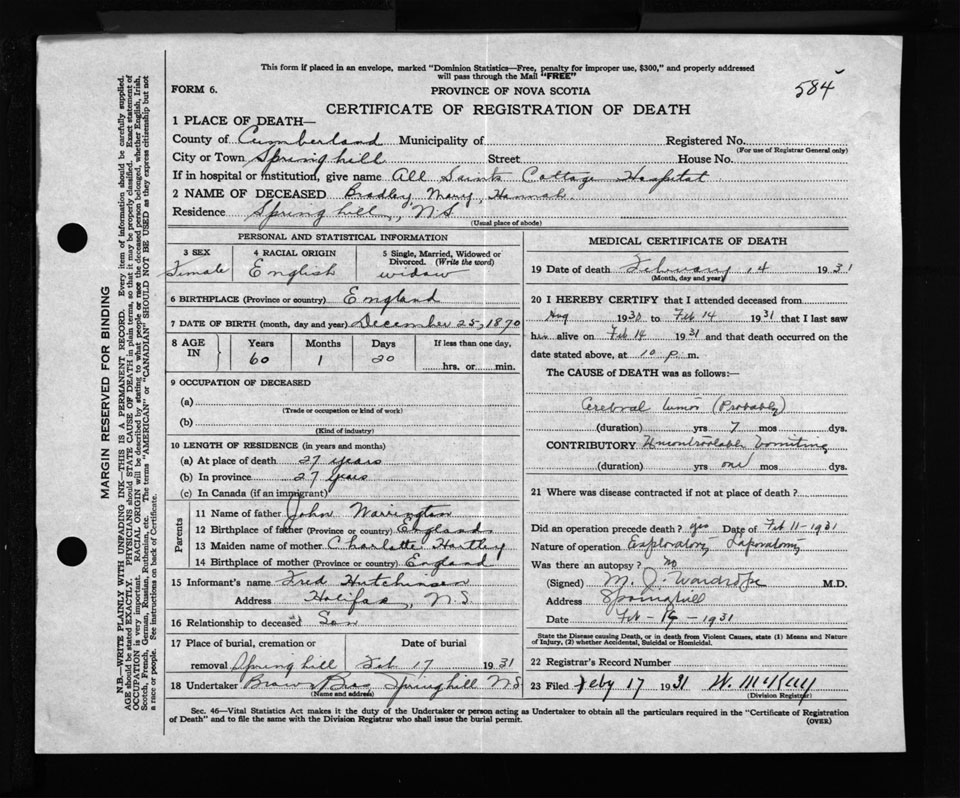 This form if placed in an envelope, marked "Dominion Statistics—Free, penalty for improper use, $300," and properly addressed
will pass through the Mail "FREE"
584
FORM 6.
PROVINCE OF NOVA SCOTIA
CERTIFICATE OF REGISTRATION OF DEATH
1 PLACE OF DEATH—
County of Cumberland Municipality of Registered No.
(For use of Registrar General only)
City or Town Springhill Street House No.
If in hospital or institution, give name All Saints Cottage Hospital
2 NAME OF DECEASED Bradley, Mary, Hannah.
Residence Springhill, N.S.
(Usual place of abode)
PERSONAL AND STATISTICAL INFORMATION
3 SEX 4 RACIAL ORIGIN 5 Single, Married, Widowed or
Divorced. (Write the word)
Female English widow
6 BIRTHPLACE (Province or country) England
7 DATE OF BIRTH (month, day and year) December 25, 1870
8 AGE IN Years Months Days If less than one day,
60 1 20 hrs. or min.
9 OCCUPATION OF DECEASED
(a)
(Trade or occupation or kind of work)
(b)
(Kind of industry)
10 LENGTH OF RESIDENCE (in years and months)
(a) At place of death 27 years
(b) In province 27 years
(c) In Canada (if an immigrant)
Parents
11 Name of father John Warrington
12 Birthplace of father (Province or country) England
13 Maiden name of mother Charlotte Hartley
14 Birthplace of mother (Province or country) England
15 Informant's name Fred Hutchinson
Address Halifax, N.S.
16 Relationship to deceased Son
17 Place of burial, cremation or Date of burial
removal Springhill Feb 17 1931
18 Undertaker Brown Bros Springhill N.S
(Name and address)
MEDICAL CERTIFICATE OF DEATH
19 Date of death February 14 1931
(Month, day and year)
20 I HEREBY CERTIFY that I attended deceased from
Aug 1930 to Feb 14 1931 that I last saw
her alive on Feb 14 1931 and that death occurred on the
date stated above, at 10 p. m.
The CAUSE of DEATH was as follows:—
Cerebral tumor (Probably)
(duration) yrs 7 mos dys.
CONTRIBUTORY Uncontrolable Vomiting
(duration) yrs one mos dys.
21 Where was disease contracted if not at place of death?
Did an operation precede death? yes Date of Feb 11-1931
Nature of operation Exploratory Laparatomy
Was there an autopsy? No
(Signed) M. J. Wardrope M.D.
Address Springhill
Date Feb - - 1931
State the Disease causing Death, or in death from Violent Causes, state (1) Means and Nature
of Injury, (2) whether Accidental, Suicidal or Homicidal.
22 Registrar's Record Number
23 Filed Feby 17 1931 W. McKay
(Division Registrar)
Sec. 46—Vital Statistics Act makes it the duty of the Undertaker or person acting as Undertaker to obtain all the particulars required in the "Certificate of Registration
of Death" and to file the same with the Division Registrar who shall issue the burial permit.
(OVER)
MARGIN RESERVED FOR BINDING
N.B.—WRITE PLAINLY WITH UNFADING INK—THIS IS A PERMANENT RECORD. Every item of information should be carefully supplied.
AGE should be stated EXACTLY. PHYSICIANS should STATE CAUSE OF DEATH in plain terms, so that it may be properly classified. Exact statement of
OCCUPATION is very important. RACIAL ORIGIN will be described by stating to what people or race the deceased person belonged, whether English, Irish,
Scotch, French, German, Russian, Ruthenian, etc. The terms "AMERICAN" or "CANADIAN" SHOULD NOT BE USED as they express citizenship but not
a race or people. See instructions on back of Certificate.